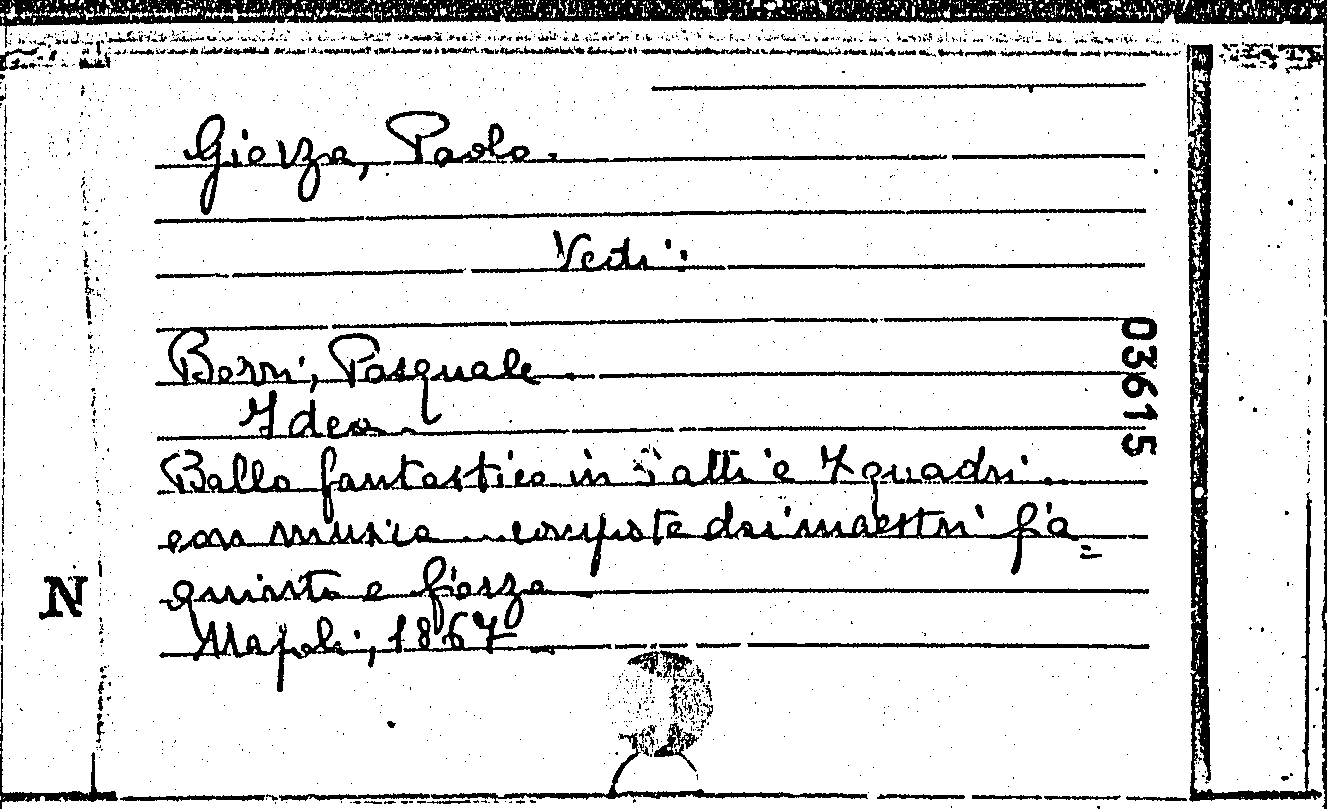 Giorza, Paolo.
Vedi:
Borri, Pasquale
Idea
Ballo fantastico in 5 atti e 7 quadri...
con musica... composta dai maestri Gia=
quinto e Giorza
Napoli, 1867
03615
N